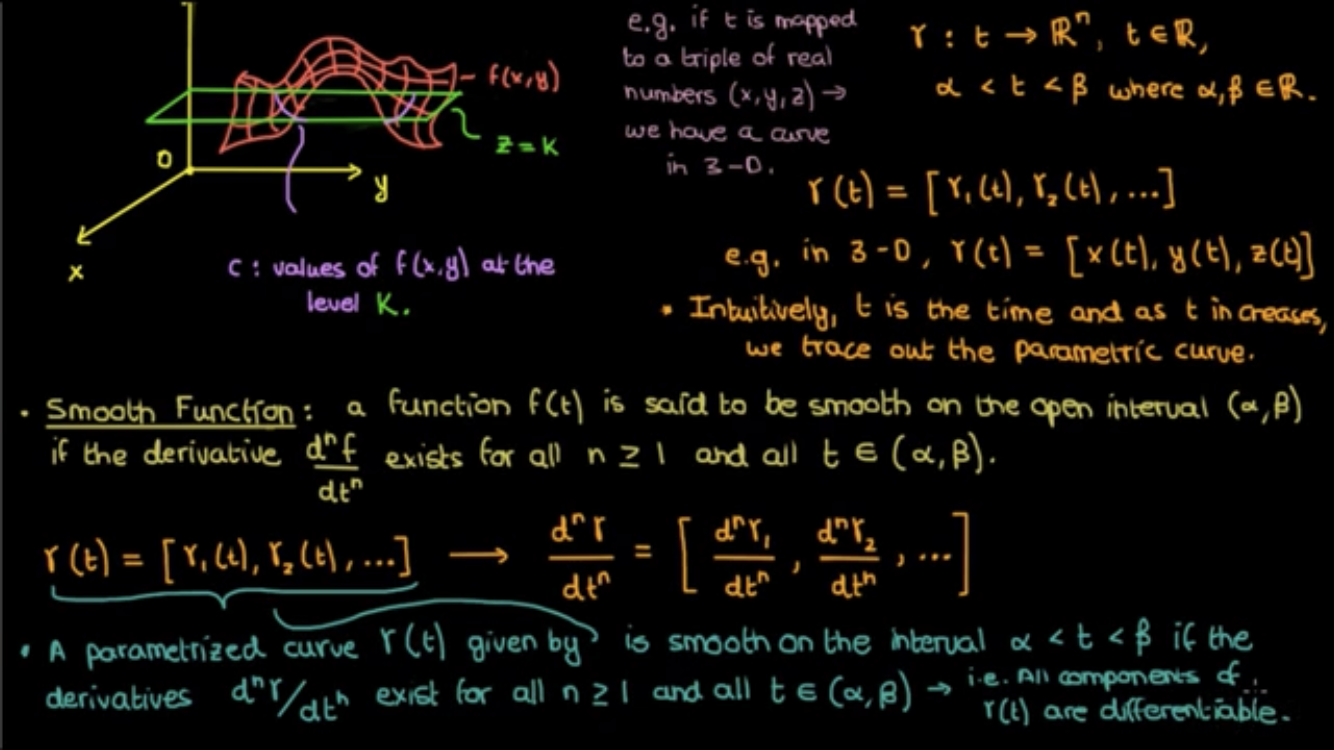 f(x,y)
z = K
0
y
x
C : values of f(x,y) at the
level K.
e.g. if t is mapped
to a triple of real
numbers (x,y,z) →
we have a curve
in 3-D.
r : t → ℝⁿ, t ∈ ℝ,
α < t < β where α,β ∈ ℝ.
r(t) = [r₁(t), r₂(t), ...]
e.g. in 3-D, r(t) = [x(t), y(t), z(t)]
• Intuitively, t is the time and as t increases,
we trace out the parametric curve.
• Smooth Function: a function f(t) is said to be smooth on the open interval (α,β)
if the derivative dⁿf/dtⁿ exists for all n ≥ 1 and all t ∈ (α,β).
r(t) = [r₁(t), r₂(t), ...] ⟶ dⁿr/dtⁿ = [dⁿr₁/dtⁿ, dⁿr₂/dtⁿ, ...]
• A parametrized curve r(t) given by is smooth on the interval α < t < β if the
derivatives dⁿr/dtⁿ exist for all n ≥ 1 and all t ∈ (α,β) → i.e. All components of
r(t) are differentiable.